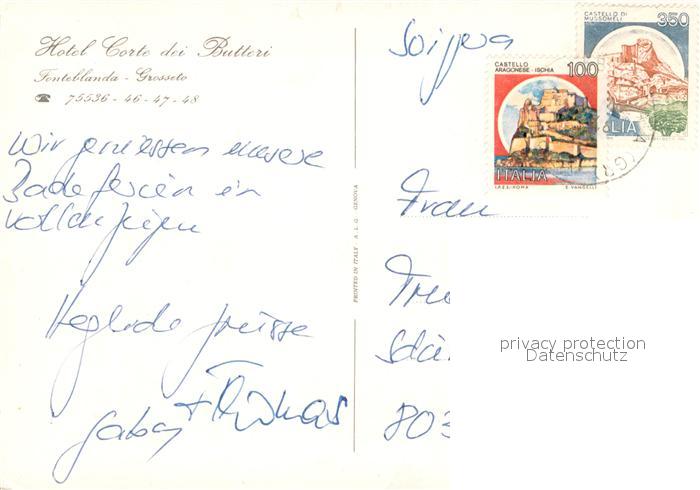 Hotel Corte dei Butteri
Fonteblanda - Grosseto
☎ 75536 - 46-47-48
Wir geniessen unsere
Badeferien in
vollen Zügen
Herzliche Grüsse
Gaby + Thomas
PRINTED IN ITALY A.L.G. GENOVA
CASTELLO DI
MUSSOMELI 350
CASTELLO
ARAGONESE - ISCHIA 100
ITALIA
I.P.Z.S. - ROMA E. VANGELLI
Frau
803
privacy protection
Datenschutz